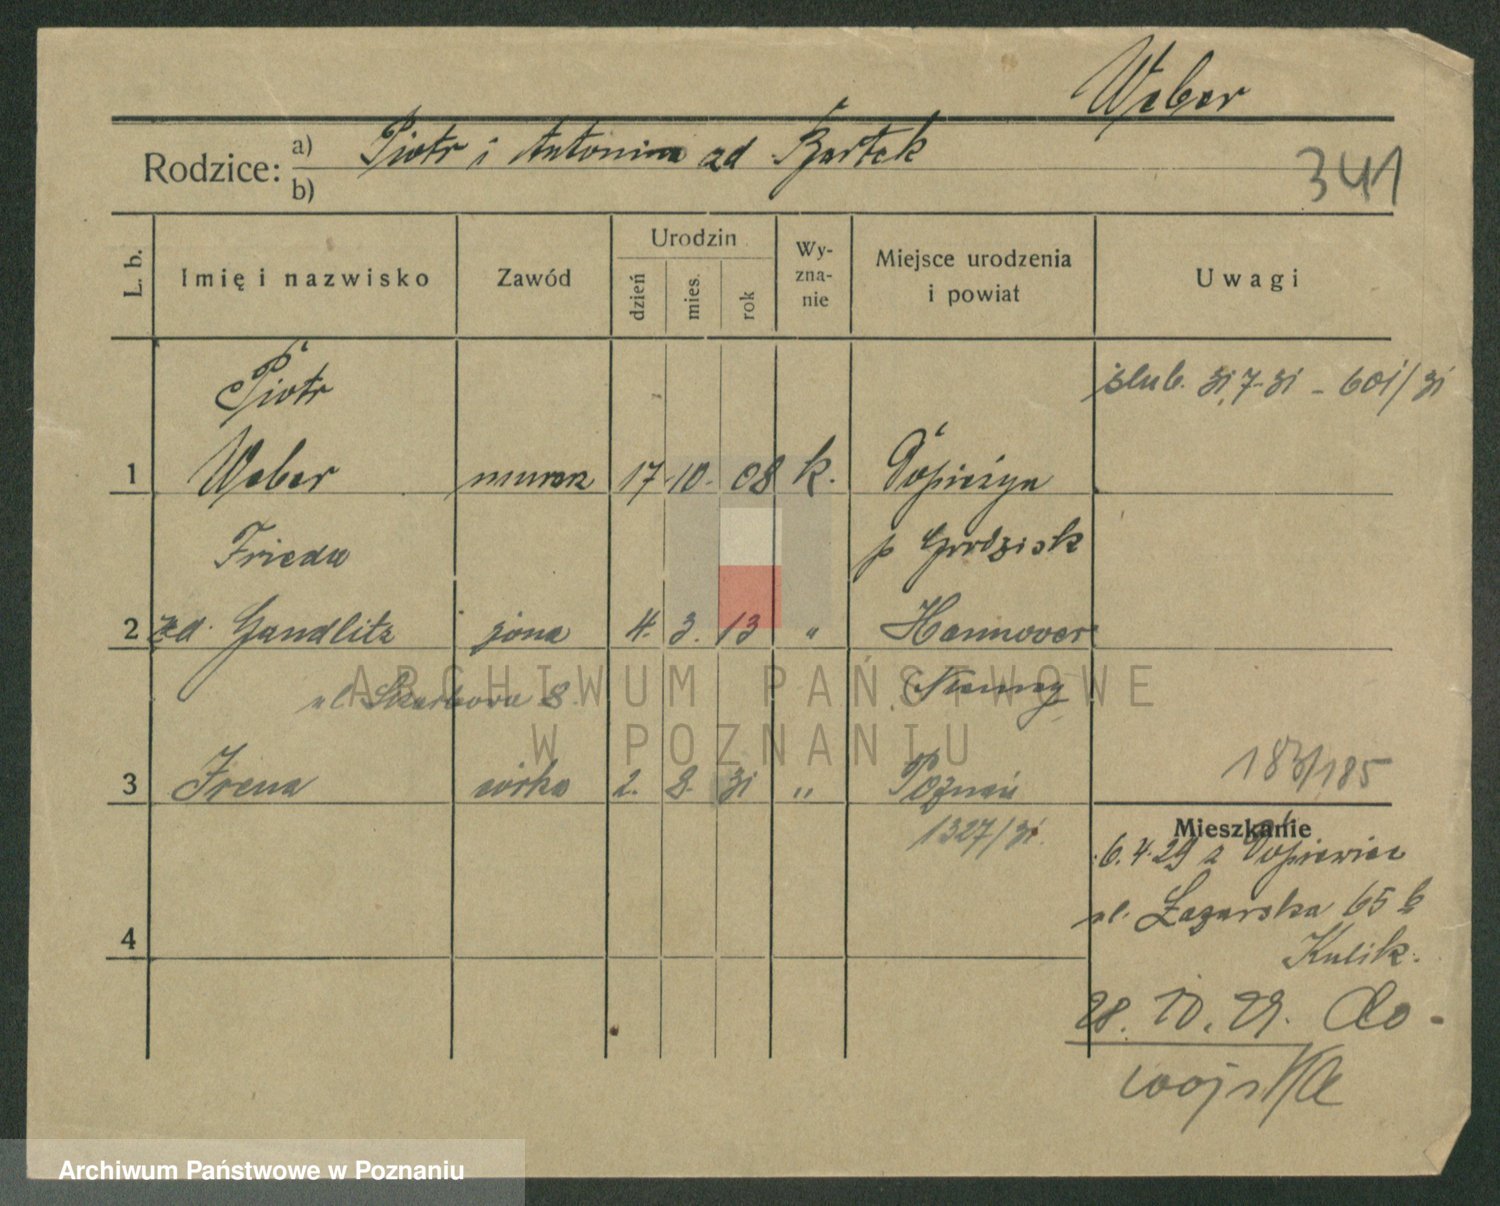 Weber
Rodzice: a) Piotr i Antonina zd Bartek
b)
341
L. b.
Imię i nazwisko
Zawód
Urodzin
dzień
mies.
rok
Wy-
zna-
nie
Miejsce urodzenia
i powiat
Uwagi
Piotr
ślub. 31.7.31 - 601/31
1 Weber murarz 17 10. 08 k.
Frieda
p Grodzisk
2 zd. Gandlitz żona 4. 3. 13 " Hannover
Niemcy
ul.
8.
183/185
3 Irena córka 2. 8. 31 " Poznań
1327/31.
Mieszkanie
6.4.29 z
ul. Łazarska 65 b
Kulik.
4
28. 10. 29. do -
wojska
ARCHIWUM PAŃSTWOWE
W POZNANIU
Archiwum Państwowe w Poznaniu